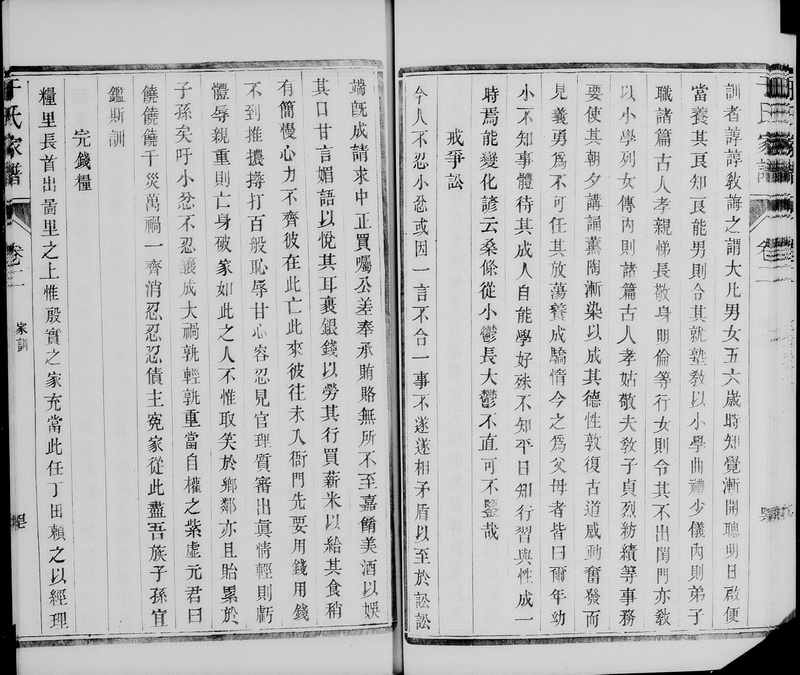 訓者諄諄敎誨之謂大凡男女五六歲時知覺漸開聰明日啟便
當養其良知良能男則令其就塾敎以小學曲禮少儀內則弟子
職諸篇古人孝親悌長敬身明倫等行女則令其不出閨門亦敎
以小學列女傳內則諸篇古人孝姑敬夫敎子貞烈紡績等事務
要使其朝夕講誦薰陶漸染以成其德性敦復古道感動奮發而
見義勇爲不可任其放蕩養成驕惰今之爲父母者皆曰爾年幼
小不知事體待其成人自能學好殊不知平日知行習與性成一
時焉能變化諺云桑條從小鬱長大鬱不直可不鑒哉
戒爭訟
今人不忍小忿或因一言不合一事不遂遂相矛盾以至於訟訟
于氏家譜
卷二
端旣成請求中正買囑公差奉承賄賂無所不至嘉餚美酒以娛
其口甘言媚語以悅其耳裹銀錢以勞其行買薪米以給其食稍
有簡慢心力不齊彼在此亡此來彼往未入衙門先要用錢用錢
不到推搪撐打百般恥辱甘心容忍見官理質審出眞情輕則虧
體辱親重則亡身破家如此之人不惟取笑於鄉鄰亦且貽累於
子孫矣吁小忿不忍釀成大禍孰輕孰重當自權之紫虛元君曰
饒饒饒千災萬禍一齊消忍忍忍債主冤家從此盡吾族子孫宜
鑑斯訓
完錢糧
糧里長首出嵓里之上惟殷實之家充當此任丁田賴之以經理
于氏家譜
卷二
家訓